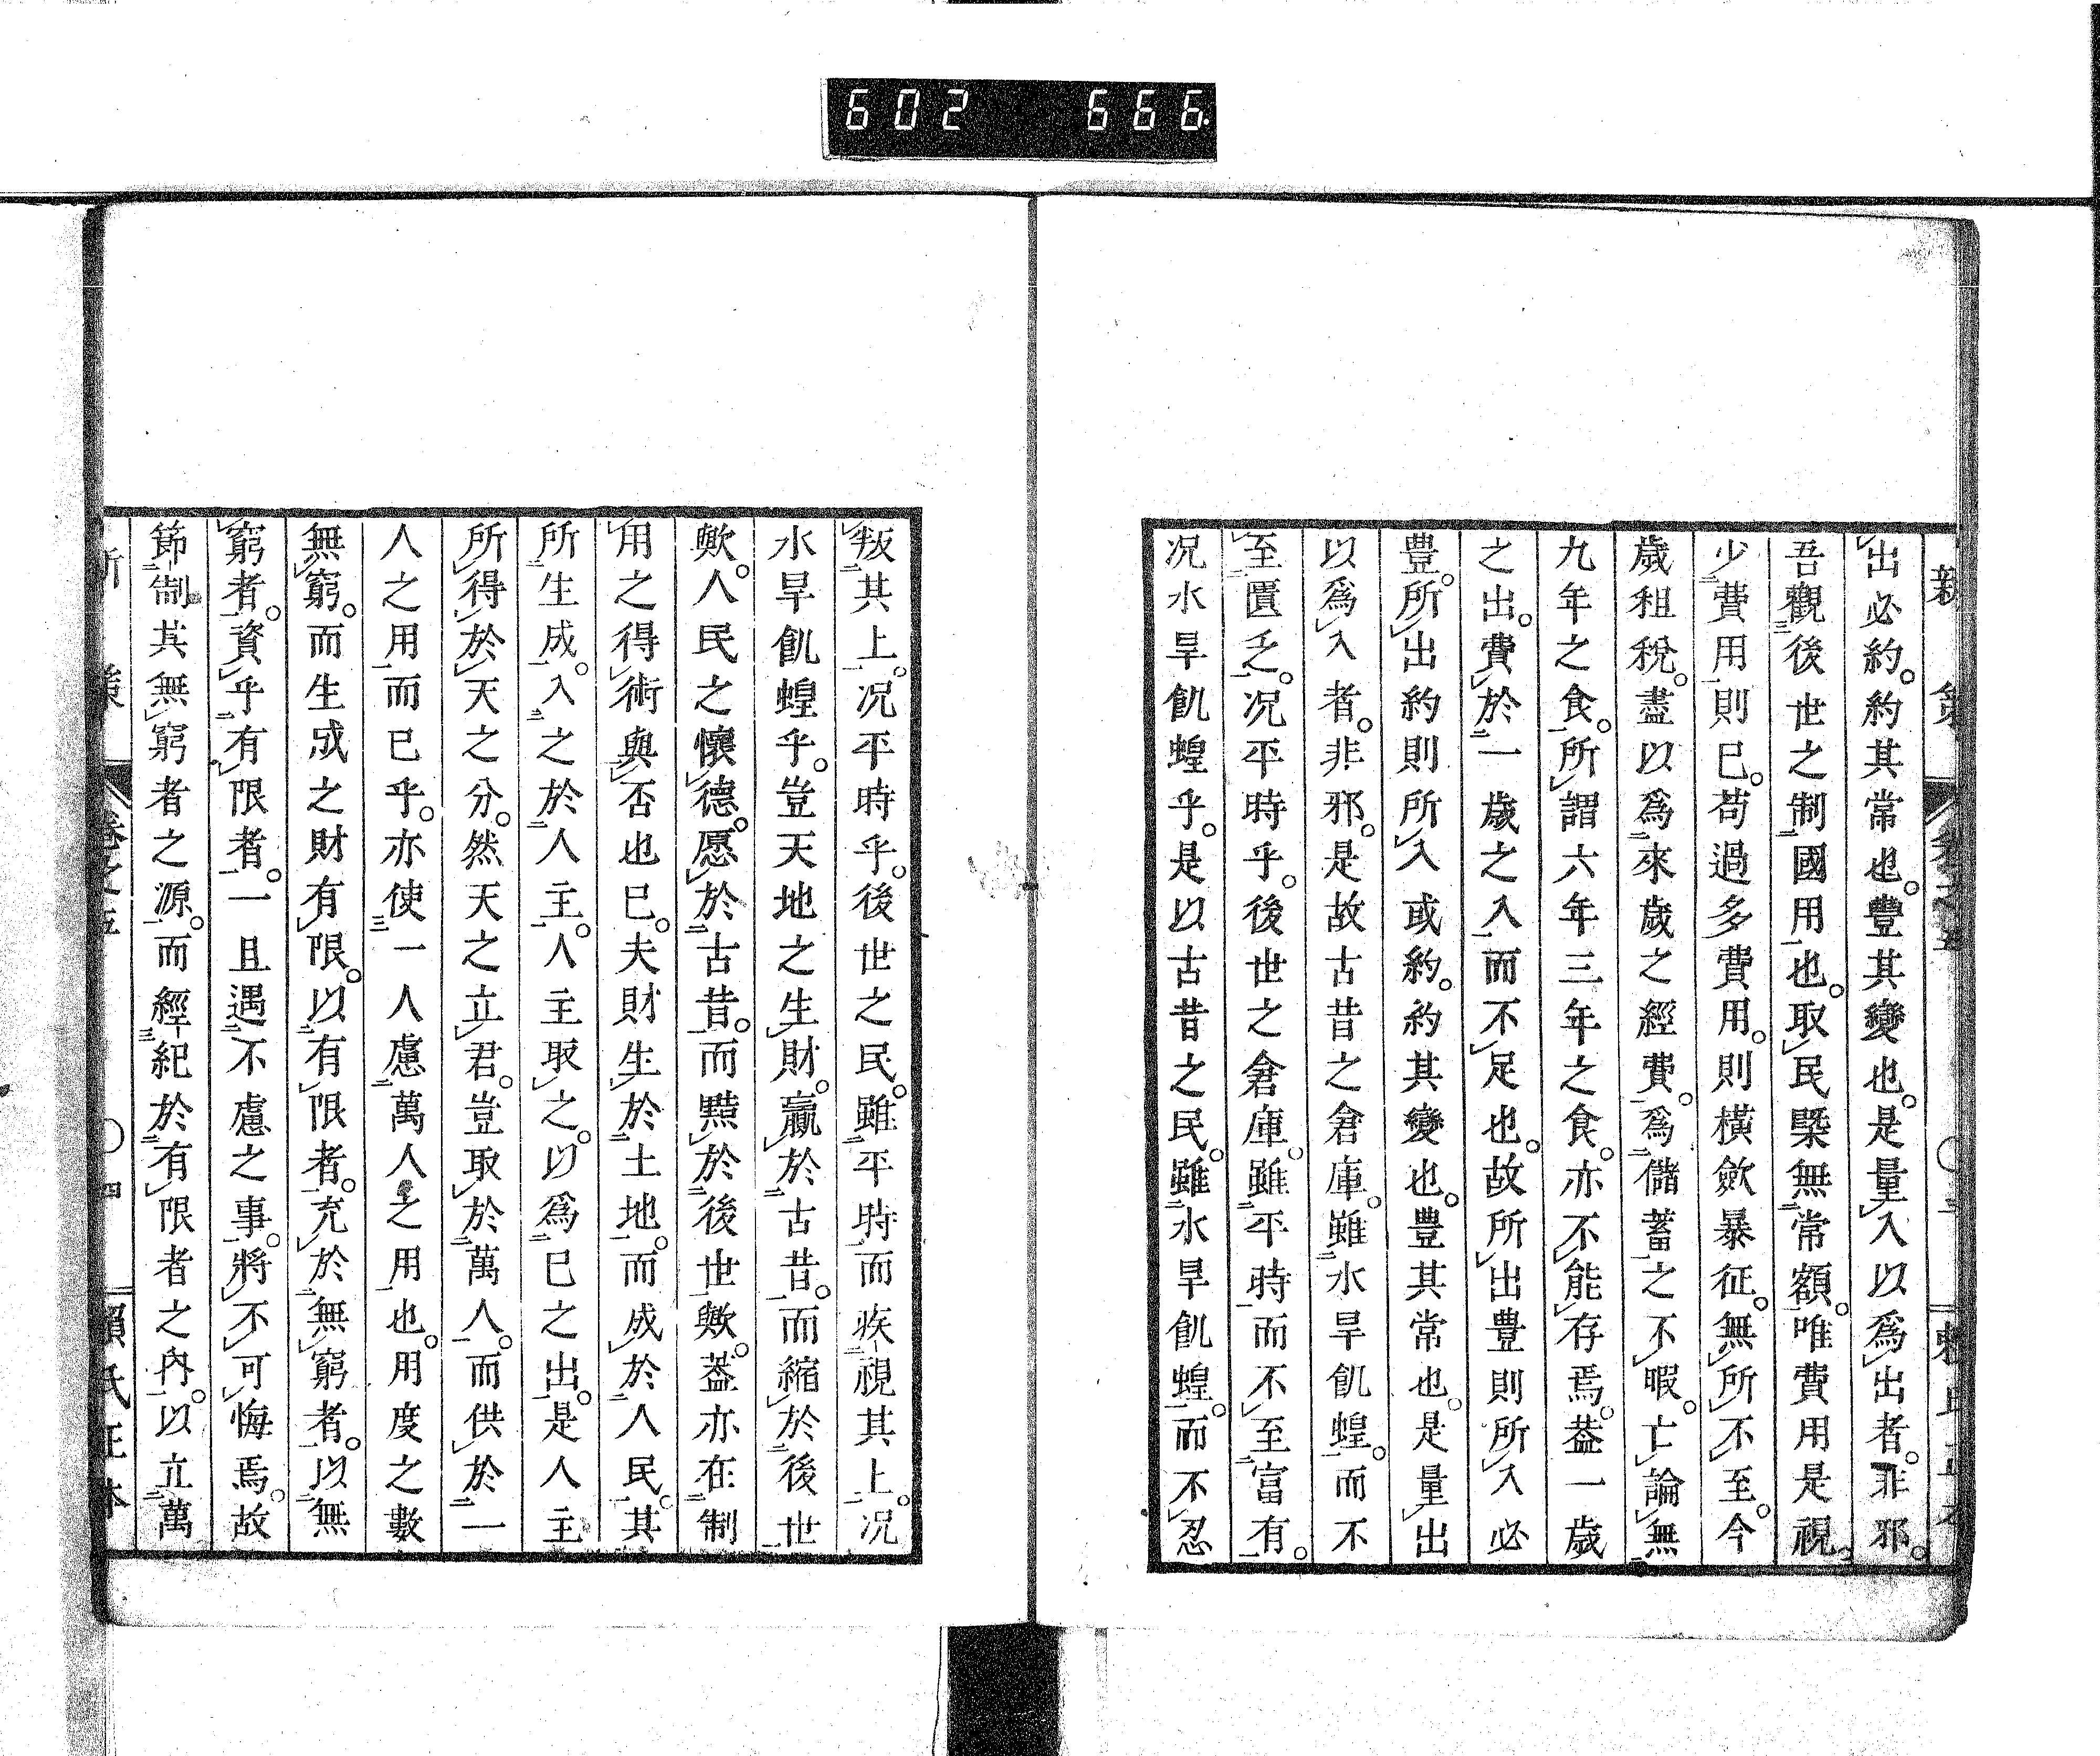 602 666.
出必約。約其常也。豐其變也。是量入以爲出者。非邪。
吾觀後世之制國用也。取民槩無常額。唯費用是視。
少費用則已。苟過多費用。則橫斂暴征。無所不至。今
歲租稅。盡以爲來歲之經費。爲儲蓄之不暇。亡論無
九年之食。所謂六年三年之食。亦不能存焉。葢一歲
之出。費於一歲之入而不足也。故所出豐則所入必
豐。所出約則所入或約。約其變也。豐其常也。是量出
以爲入者。非邪。是故古昔之倉庫。雖水旱飢蝗。而不
至匱乏。況平時乎。後世之倉庫。雖平時而不至富有。
況水旱飢蝗乎。是以古昔之民。雖水旱飢蝗。而不忍
叛其上。況平時乎。後世之民。雖平時而疾視其上。況
水旱飢蝗乎。豈天地之生財。贏於古昔。而縮於後世
歟。人民之懷德。愿於古昔。而黠於後世歟。葢亦在制
用之得術與否也已。夫財生於土地。而成於人民。其
所生成。入之於人主。人主取之。以爲己之出。是人主
所得於天之分。然天之立君。豈取於萬人。而供於一
人之用而已乎。亦使一人慮萬人之用也。用度之數
無窮。而生成之財有限。以有限者。充於無窮者。以無
窮者。資乎有限者。一旦遇不慮之事。將不可悔焉。故
節制其無窮者之源。而經紀於有限者之內。以立萬
新 策 卷之五 〇四 賴氏正本